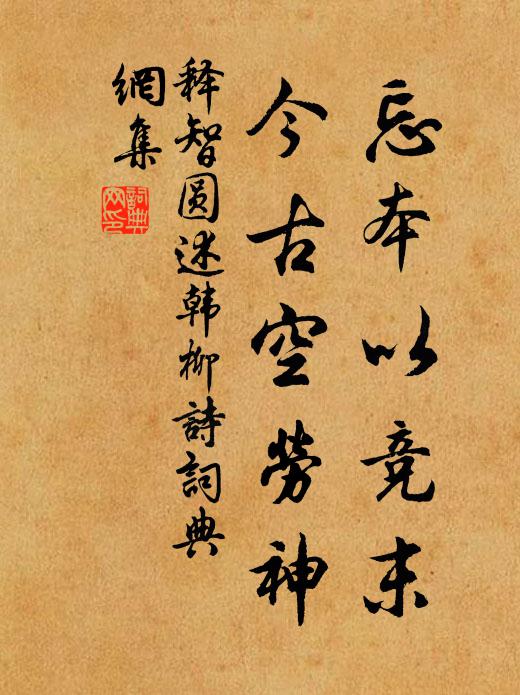 忘本以竞末
今古空劳神
释智圆述韩柳詩詞典
網集
詞典
网印